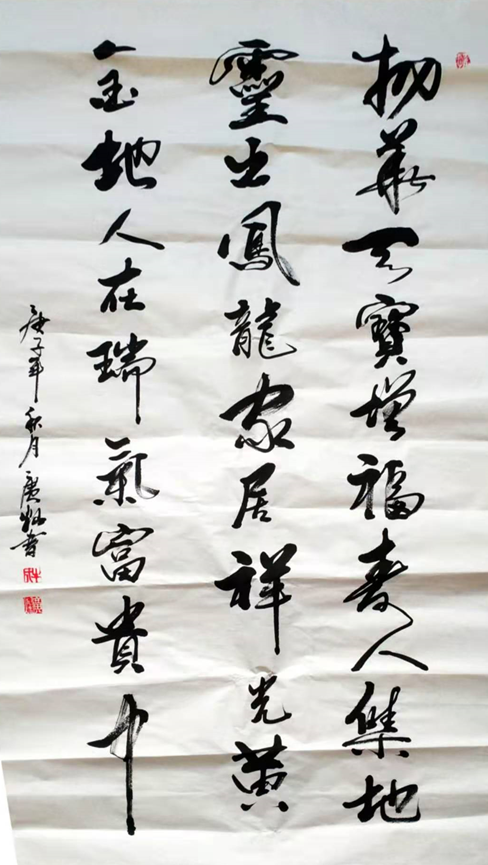 物華天寶增福壽人傑地
靈出鳳龍家居祥光黄
金地人在瑞氣富貴中
庚子年秋月廣烱書